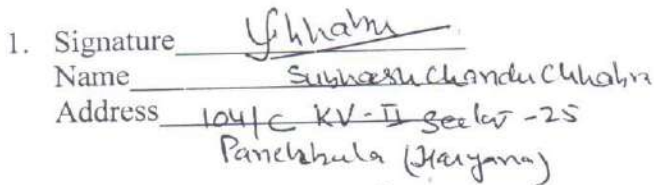 1. Signature Chhabra
Name Subhash Chander Chhabra
Address 104/C KV-II Sector -25
Panchkula (Haryana)